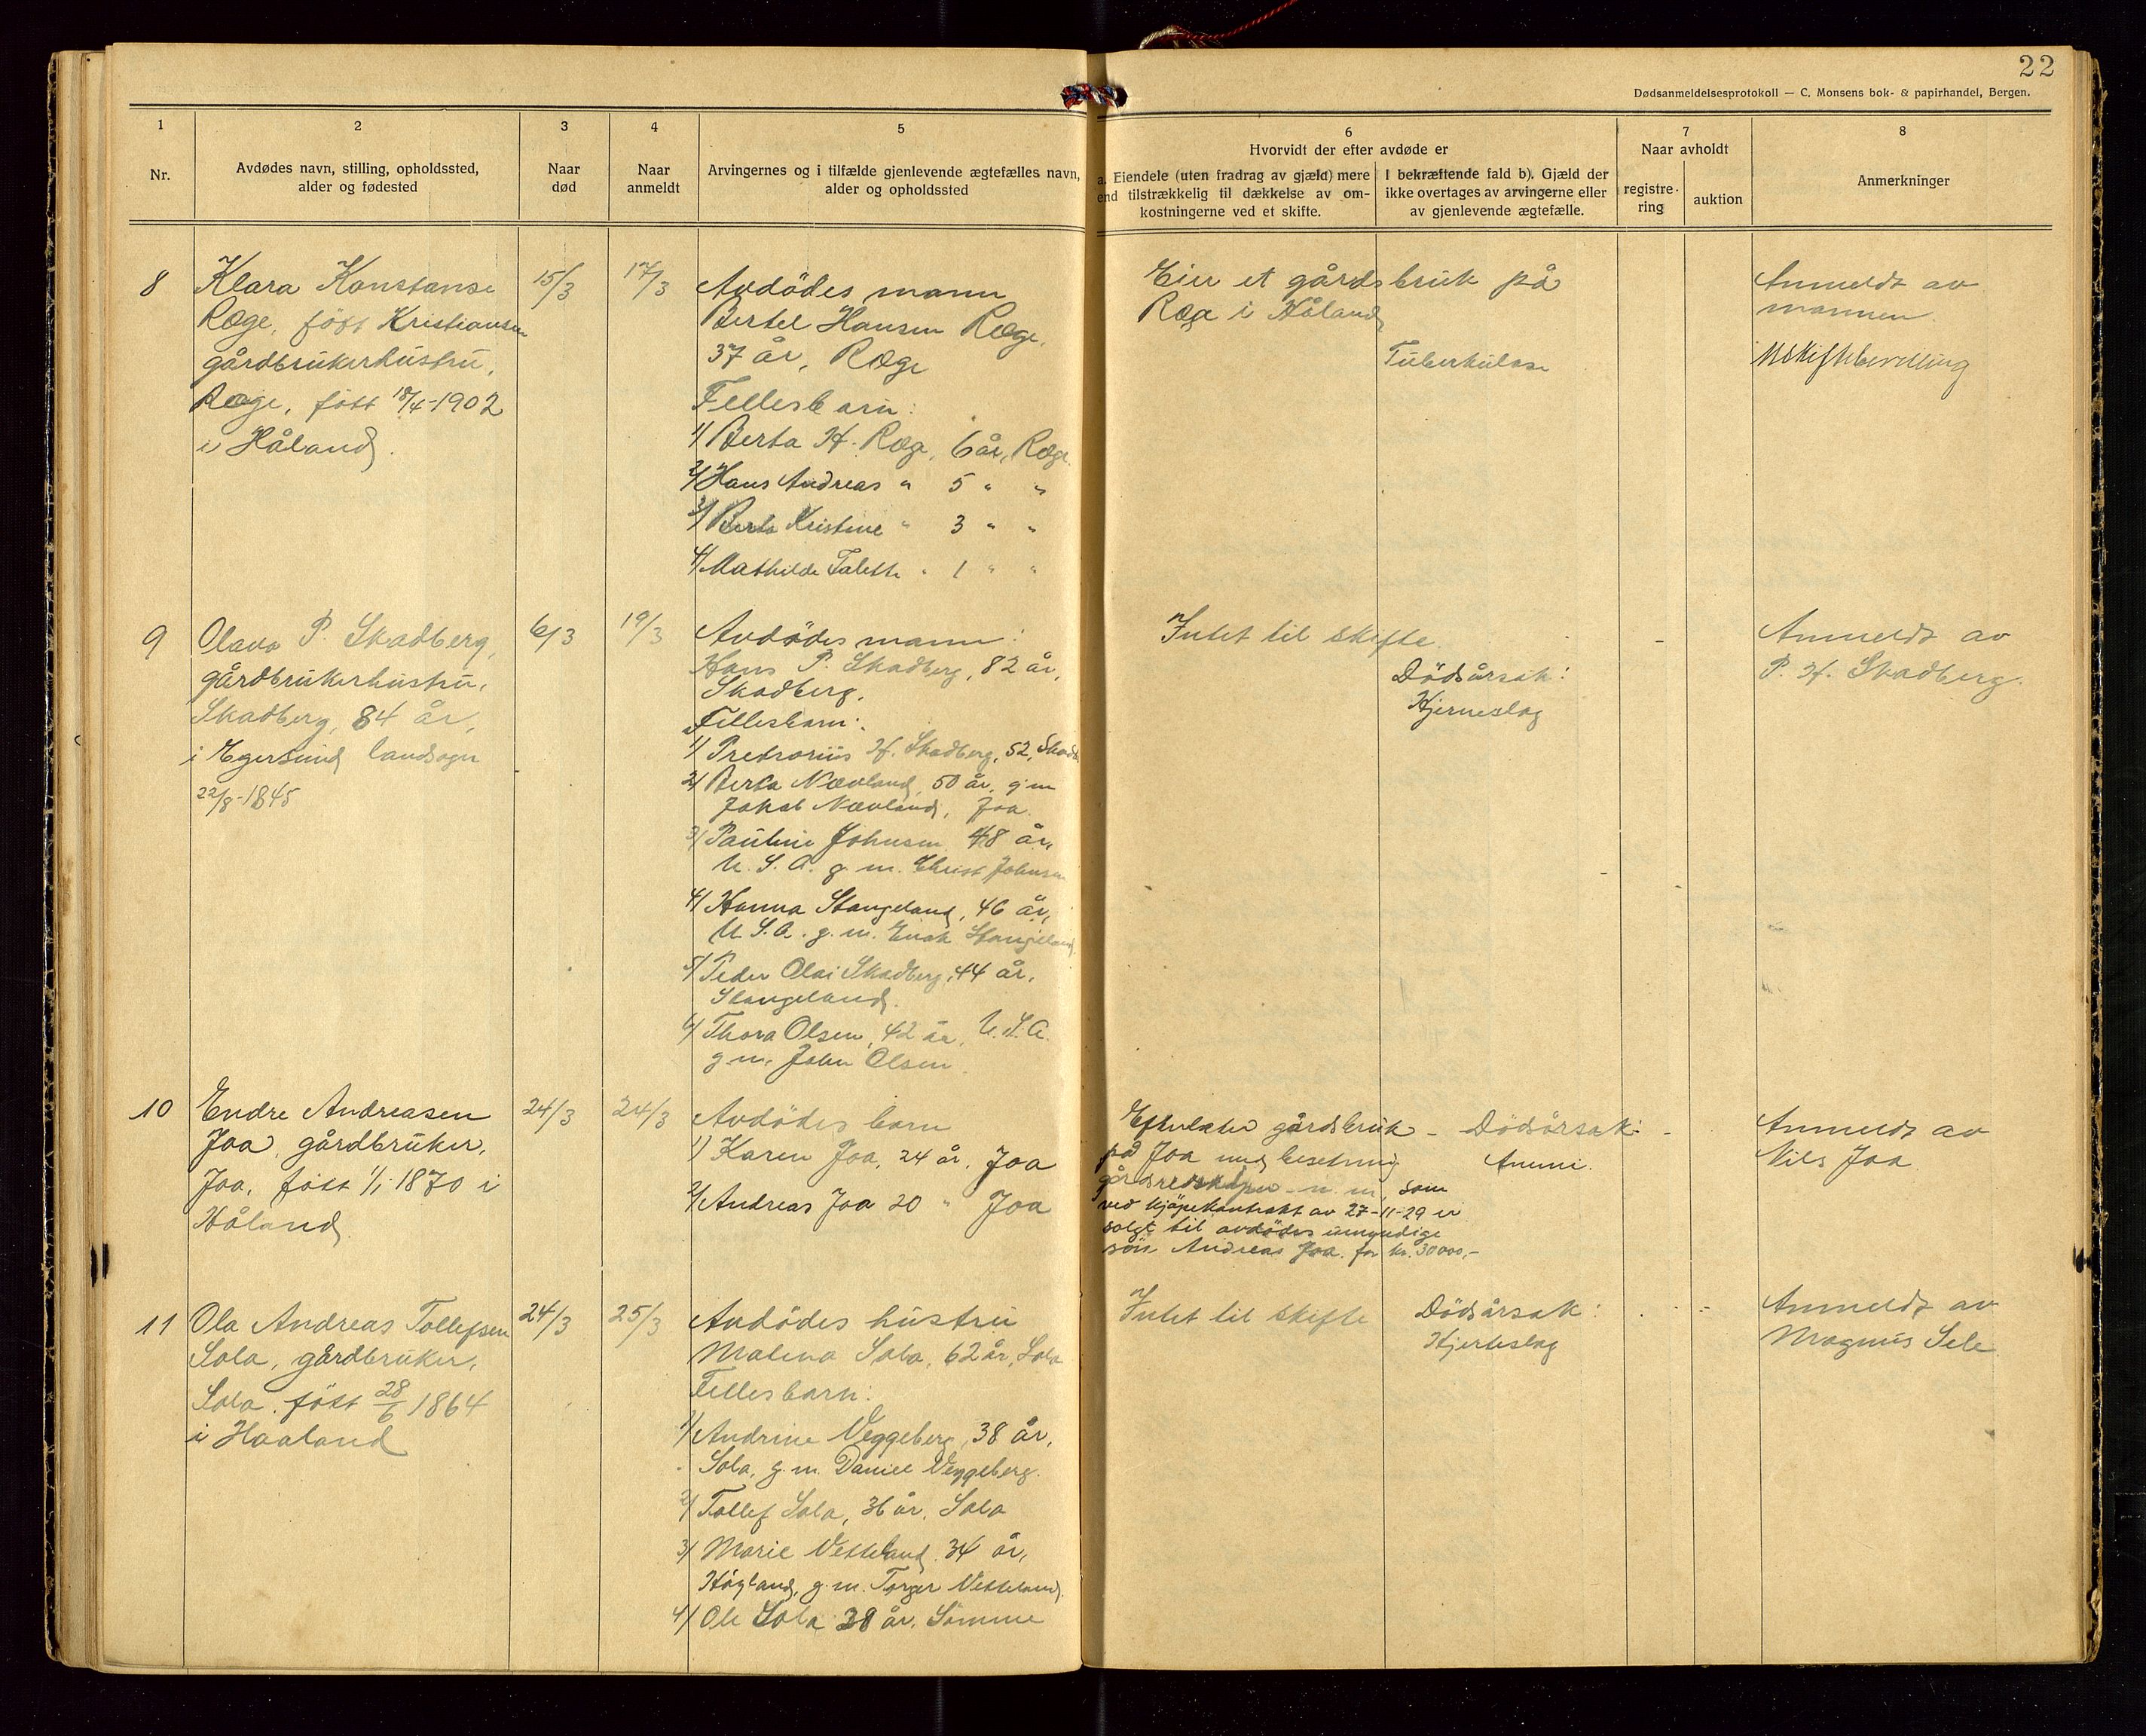 22
Dødsanmeldelsesprotokoll — C. Monsens bok- & papirhandel, Bergen.
1
2
3
4
5
6
7
8
Nr.
Avdødes navn, stilling, opholdssted,
alder og fødested
Naar
død
Naar
anmeldt
Arvingernes og i tilfælde gjenlevende ægtefælles navn,
alder og opholdssted
Hvorvidt der efter avdøde er
a. Eiendele (uten fradrag av gjæld) mere
end tilstrækkelig til dækkelse av om-
kostningerne ved et skifte.
I bekræftende fald b). Gjæld der
ikke overtages av arvingerne eller
av gjenlevende ægtefælle.
Naar avholdt
registre-
ring
auktion
Anmerkninger
8
Klara Konstanse
Ræge, født Kristiansen
gårdbrukerhustru,
Ræge, født 18/4-1902
i Håland.
15/3
17/3
Avdödes mann
Bertel Hansen Ræge,
37 år, Ræge
Fellesbarn:
1/ Berta H. Ræge, 6 år, Ræge
2/ Hans Andreas " 5 " "
3/ Berta Kristine " 3 " "
4/ Mathilde Talette " 1 " "
Eier et gårdsbruk på
Ræge i Håland
Tuberkulose
Anmeldt av
mannen.
Uskiftebevilling
9
Olava P. Skadberg,
gårdbrukerhustru,
Skadberg, 84 år,
i Egersund landsogn
22/8-1845
6/3
19/3
Avdödes mann:
Hans P. Skadberg, 82 år,
Skadberg.
Fellesbarn:
1/ Predrorius H. Skadberg, 52, Skadb.
2/ Berta Nævland, 50 år, g m
Jakob Nævland, Joa.
3/ Pauline Johnsen 48 år,
U.S.A. g. m. Christ Johnsen
4/ Hanna Stangeland, 46 år,
U.S.A. g. m. Enok Stangeland
5/ Peder Olai Skadberg, 44 år,
Stangeland.
6/ Thora Olsen, 42 år, U.S.A.
g m. John Olsen
Intet til skifte.
Dödsårsak:
Hjerneslag
Anmeldt av
P. H. Skadberg.
10
Endre Andreasen
Joa, gårdbruker,
Joa, født 1/1 1870 i
Håland
24/3
24/3
Avdödes barn
1) Karen Joa, 24 år, Joa
2/ Andreas Joa 20 " Joa
Efterlater gårdsbruk
på Joa med besetning
gårdsredskaper m. m., som
ved kjöpekontrakt av 27-11-29 er
solgt til avdödes umyndige
sön Andreas Joa. for kr. 30000,-
- Dödsårsak:
Anemi.
Anmeldt av
Nils Joa
11
Ola Andreas Tollefsen
Sola, gårdbruker,
Sola. født 28/6 1864
i Haaland
24/3
25/3
Avdödes hustru
Malena Sola, 62 år, Sola
Fellesbarn:
1/ Andrine Veggeberg, 38 år,
Sola, g. m. Daniel Veggeberg.
2/ Tollef Sola, 36 år, Sola
3/ Marie Vetteland 34 år,
Högland, g. m. Torger Vetteland
4/ Ole Sola 28 år. Sömme
Intet til skifte
Dödsårsak:
Hjerteslag
Anmeldt av
Magnus Sele.